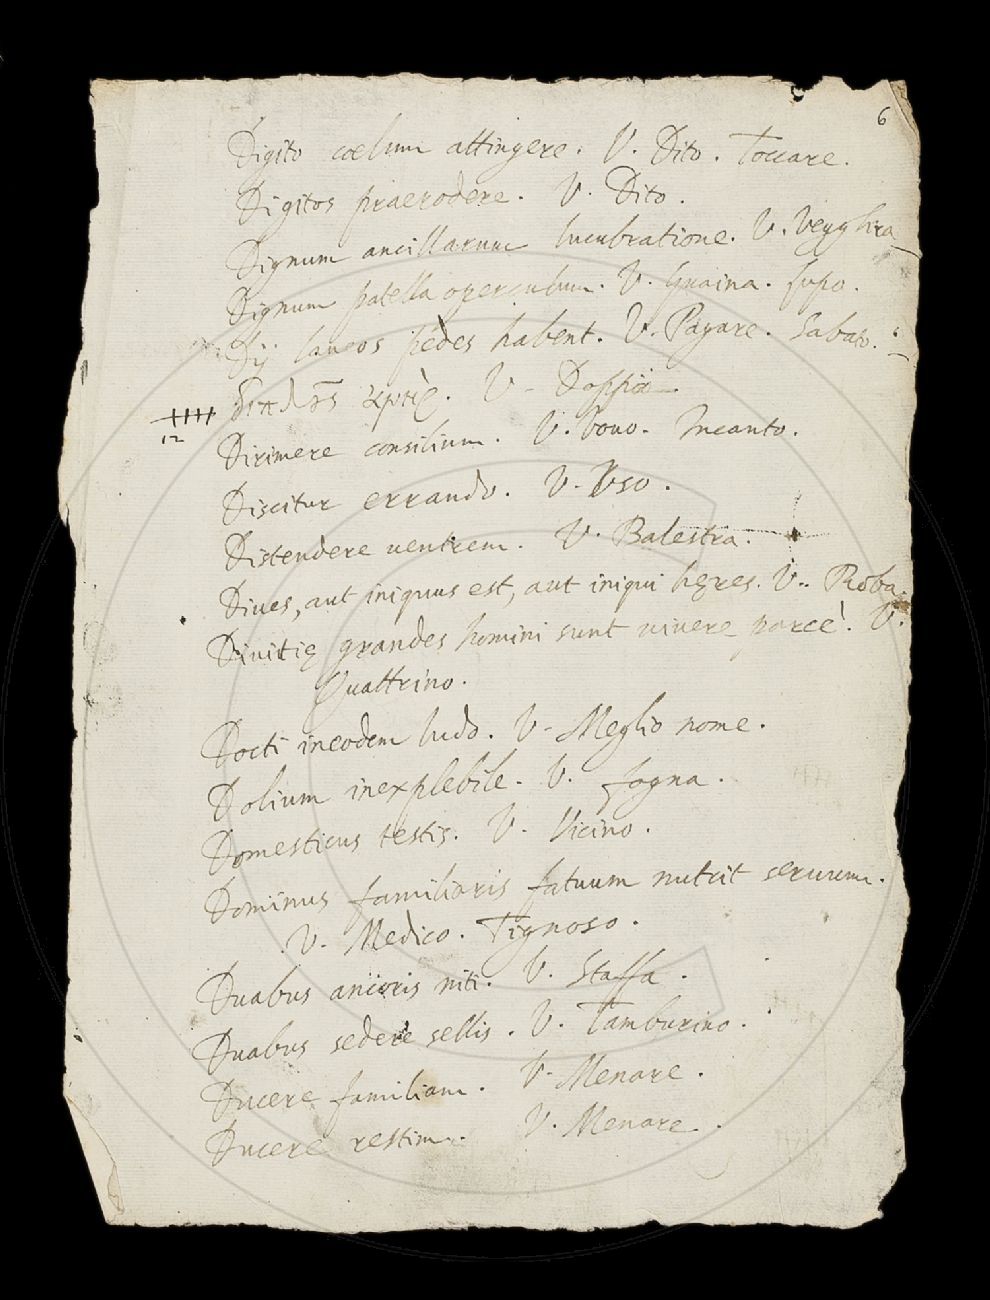 6
Digito cœlum attingere. V. Dito. Toccare.
Digitos praerodere. V. Dito.
Dignum ancillarum lucubratione. V. Vegghia
Dignum patella operculum. V. Guaina. Lupo.
Dij laneos pedes habent. V. Pagare. Sabato.
V. Doppia
12
Dirimere consilium. V. Vovo. Incanto.
Discitur errando. V. Vso.
Distendere uentrem. V. Balestra.
Diues, aut iniquus est, aut iniqui hęres. V. Roba.
Diuitię grandes homini sunt uiuere parcè. V.
Quattrino.
Docti ineodem ludo. V. Meglio nome.
Dolium inexplebile. V. fogna.
Domesticus testis. V. Vicino.
Dominus familiaris fatuum nutrit seruum.
V. Medico. Tignoso.
Duabus ancoris niti. V. Staffa.
Duabus sedere sellis. V. Tamburino.
Ducere familiam. V. Menare.
Ducere restim. V. Menare.